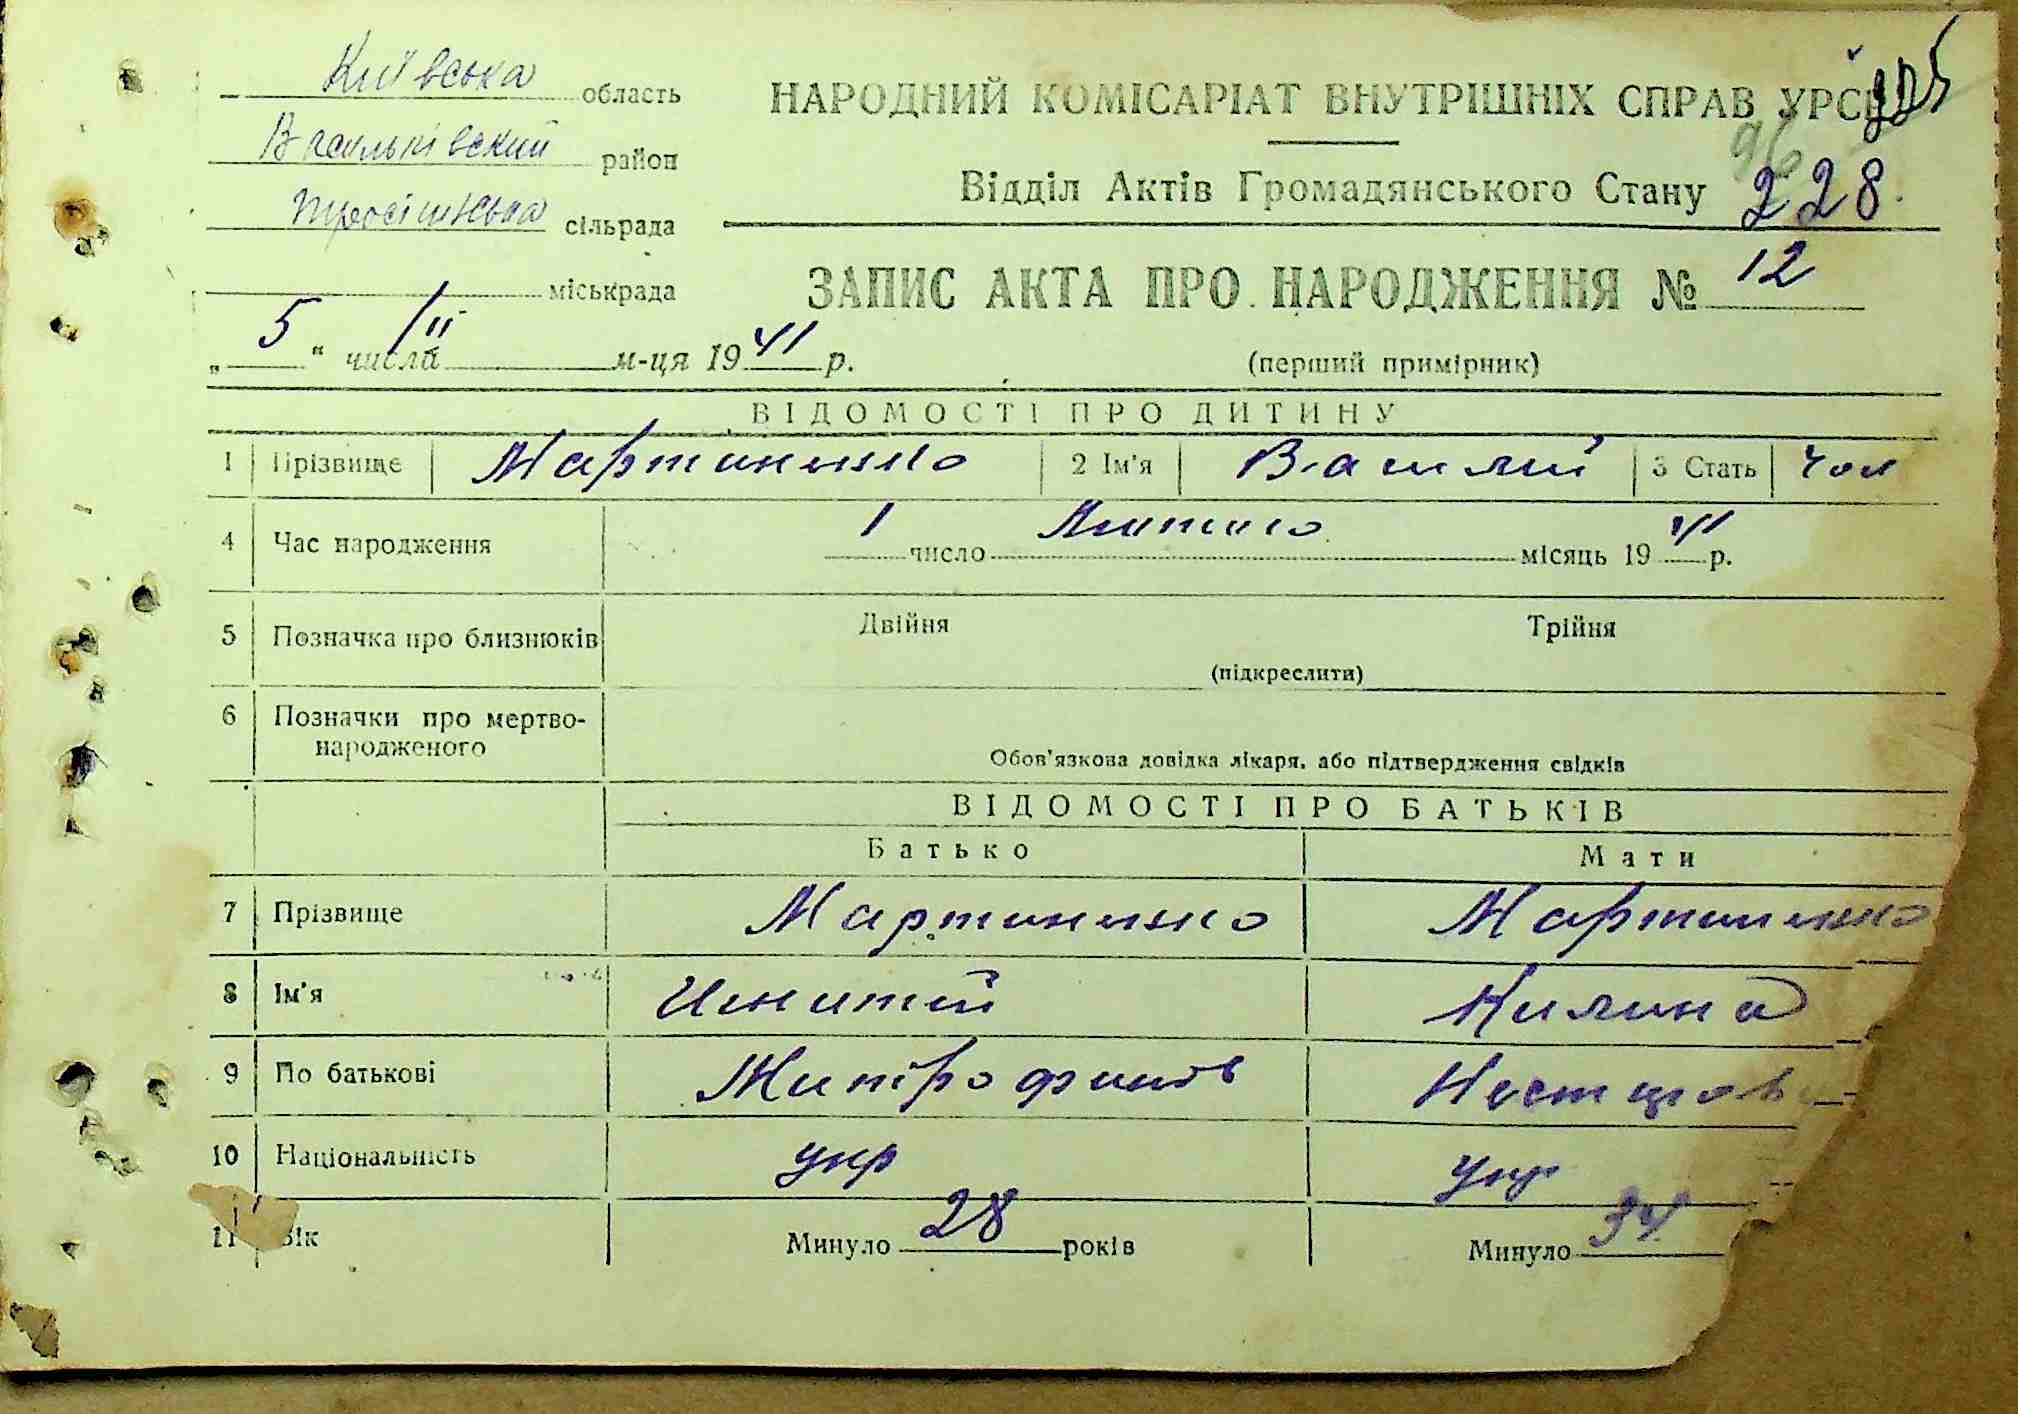 Київська область
Васильківский район
Тросинська сільрада
міськрада
НАРОДНИЙ КОМІСАРІАТ ВНУТРІШНІХ СПРАВ УРСР
96
Відділ Актів Громадянського Стану 228
ЗАПИС АКТА ПРО НАРОДЖЕННЯ № 12
„5“ числа ІІ м-ця 1941 р. (перший примірник)
ВІДОМОСТІ ПРО ДИТИНУ
1 Прізвище Мартиненко 2 Ім'я Василий 3 Стать Чол
4 Час народження 1 число Лютого місяць 1941 р.
5 Позначка про близнюків Двійня Трійня
(підкреслити)
6 Позначки про мертво-
народженого
Обов'язкова довідка лікаря, або підтвердження свідків
ВІДОМОСТІ ПРО БАТЬКІВ
Батько Мати
7 Прізвище Мартиненко Мартиненко
8 Ім'я Килина
9 По батькові Митрофанов
10 Національність укр Укр
11 Вік Минуло 28 років Минуло 34